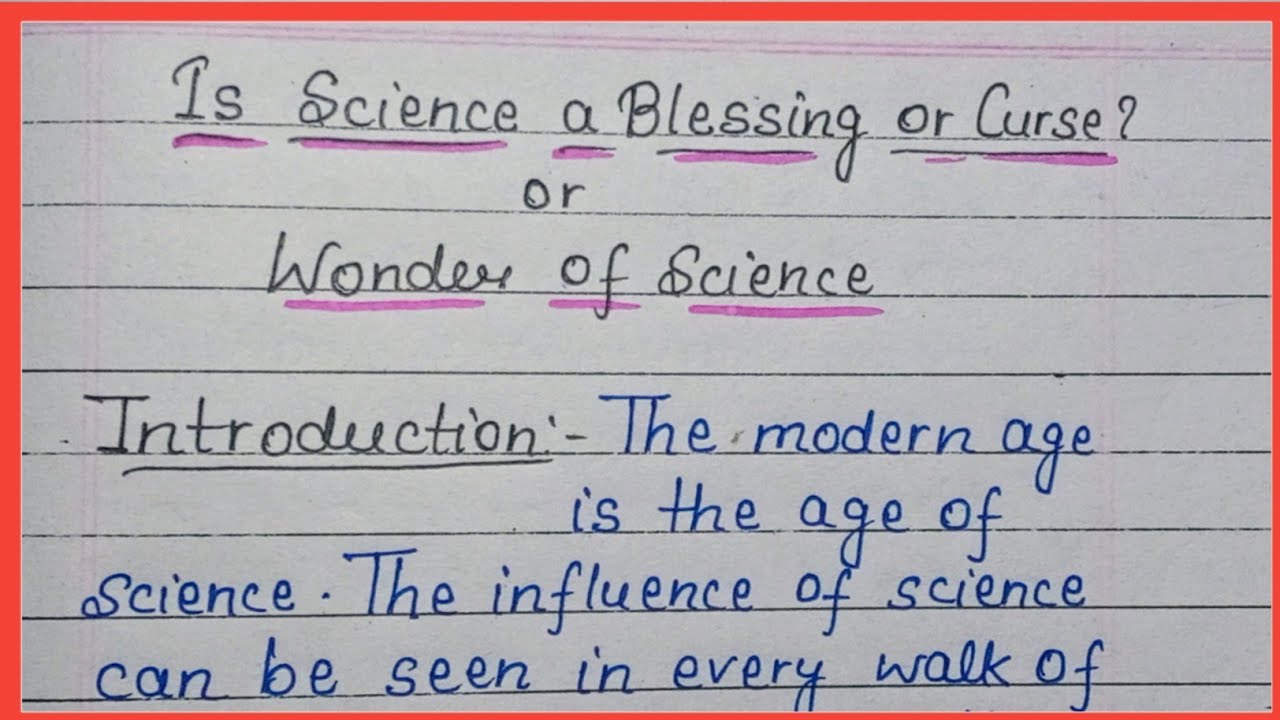 Is Science a Blessing or Curse?
or
Wonder of Science
Introduction:- The modern age
is the age of
science. The influence of science
can be seen in every walk of